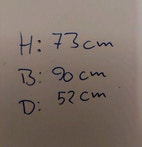 H: 73cm
B: 90cm
D: 52cm